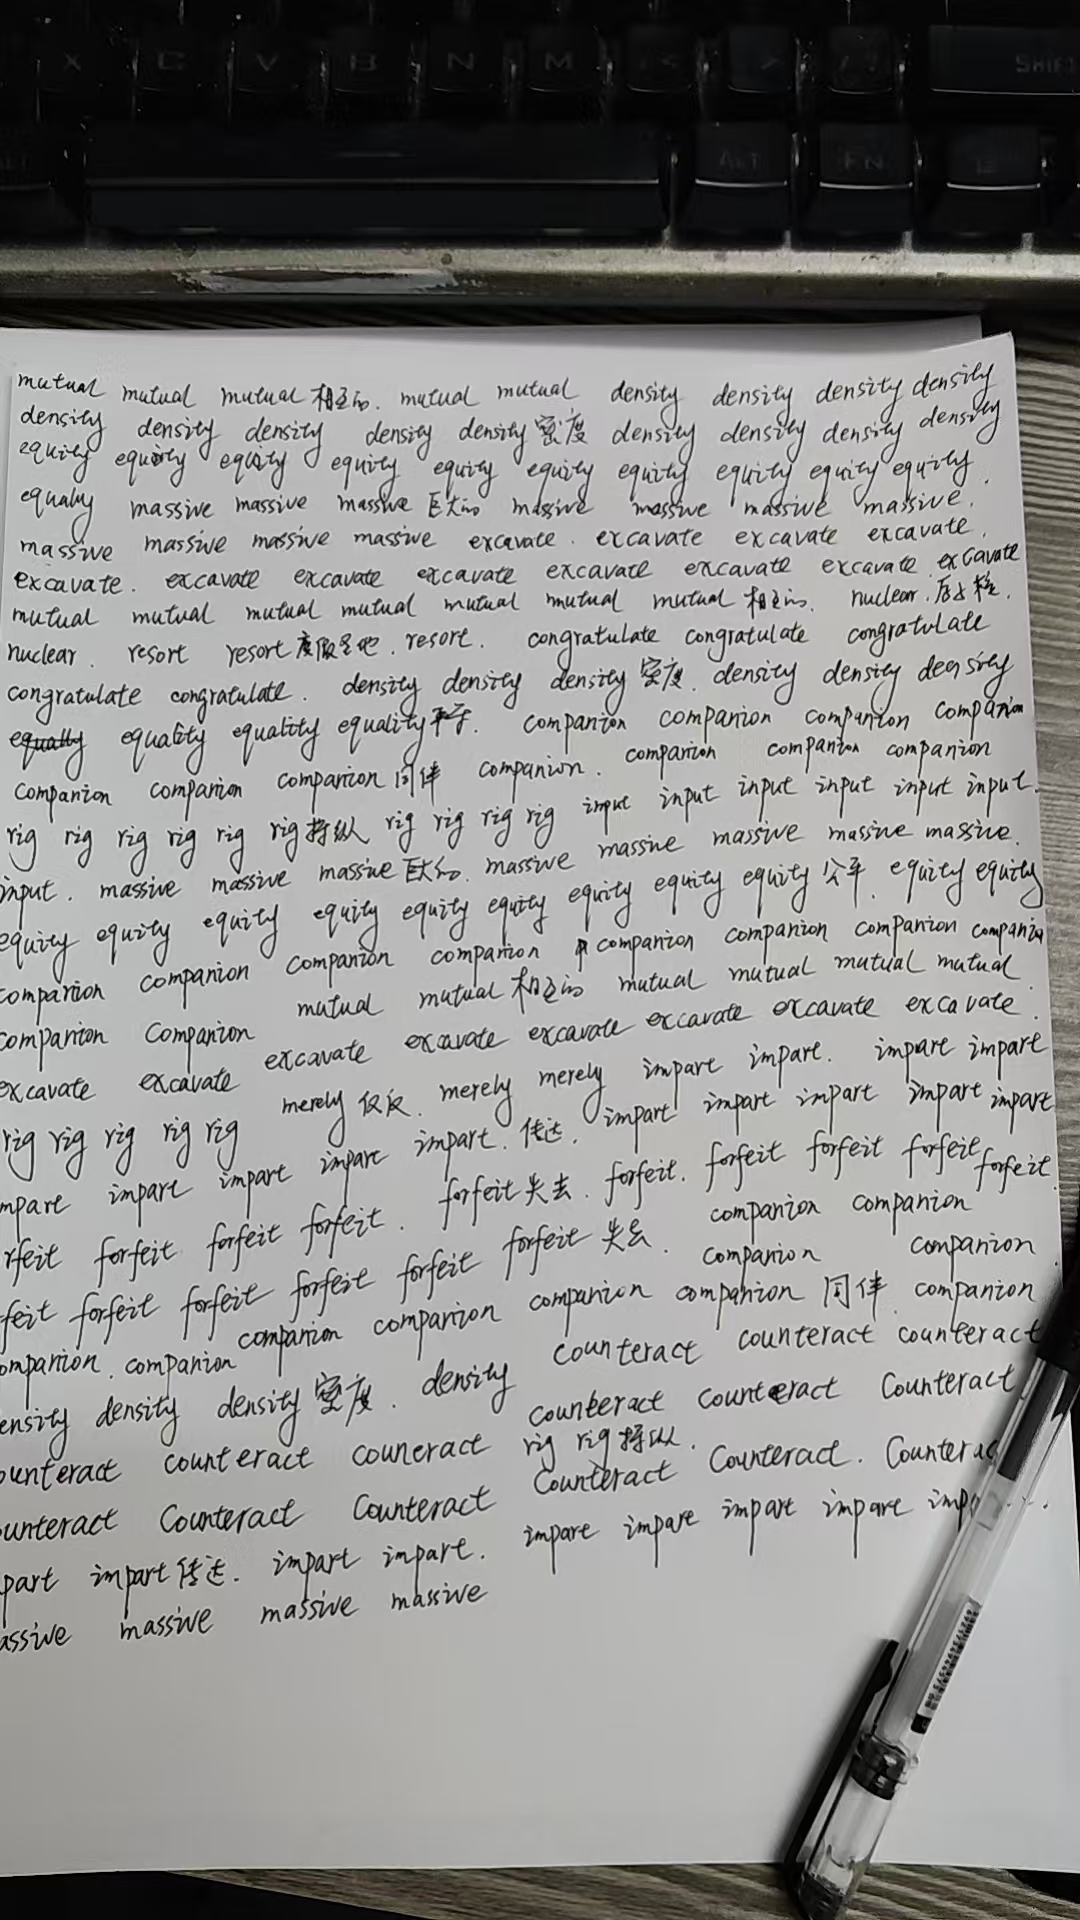 X C V B N M < > / ? SHIFT
ALT ALT FN
mutual mutual mutual 相互的. mutual mutual density density density density
density density density density density 密度 density density density density
equity equity equity equity equity equity equity equity equity equity.
equaly massive massive massive 巨大的 massive massive massive massive.
massive massive massive massive excavate. excavate excavate excavate.
excavate. excavate excavate excavate excavate excavate excavate excavate
mutual mutual mutual mutual mutual mutual mutual 相互的. nuclear.
nuclear. resort resort 度假圣地. resort. congratulate congratulate congratulate
congratulate congratulate. density density density 密度. density density deensity
equality equality equality 平等. companion companion companion companion
companion companion companion 同伴 companion. companion companion companion
rig rig rig rig rig rig 操纵 rig rig rig rig input input input input input input.
input. massive massive massive 巨大的. massive massive massive massive massive.
equity equity equity equity equity equity equity equity equity 公平. equity equity
companion companion companion companion companion companion companion companion
companion companion mutual mutual 相互的 mutual mutual mutual mutual
excavate excavate excavate excavate excavate excavate excavate excavate.
rig rig rig rig rig merely 仅仅. merely merely impart impart. impart impart
mpart impart impart impart impart. 传达. impart impart impart impart impart
rfeit forfeit forfeit forfeit. forfeit 失去. forfeit. forfeit forfeit forfeit forfeit.
feit forfeit forfeit forfeit forfeit forfeit 失去. companion companion
companion companion
ompanion. companion companion companion companion companion 同伴. companion
ensity density density 密度. density counteract counteract counteract
ounteract counteract couneract counteract counteract Counteract
rig rig 操纵.
unteract Counteract Counteract Counteract Counteract. Counterac
part impart 传达. impart impart. impart impart impart impart imp
assive massive massive massive